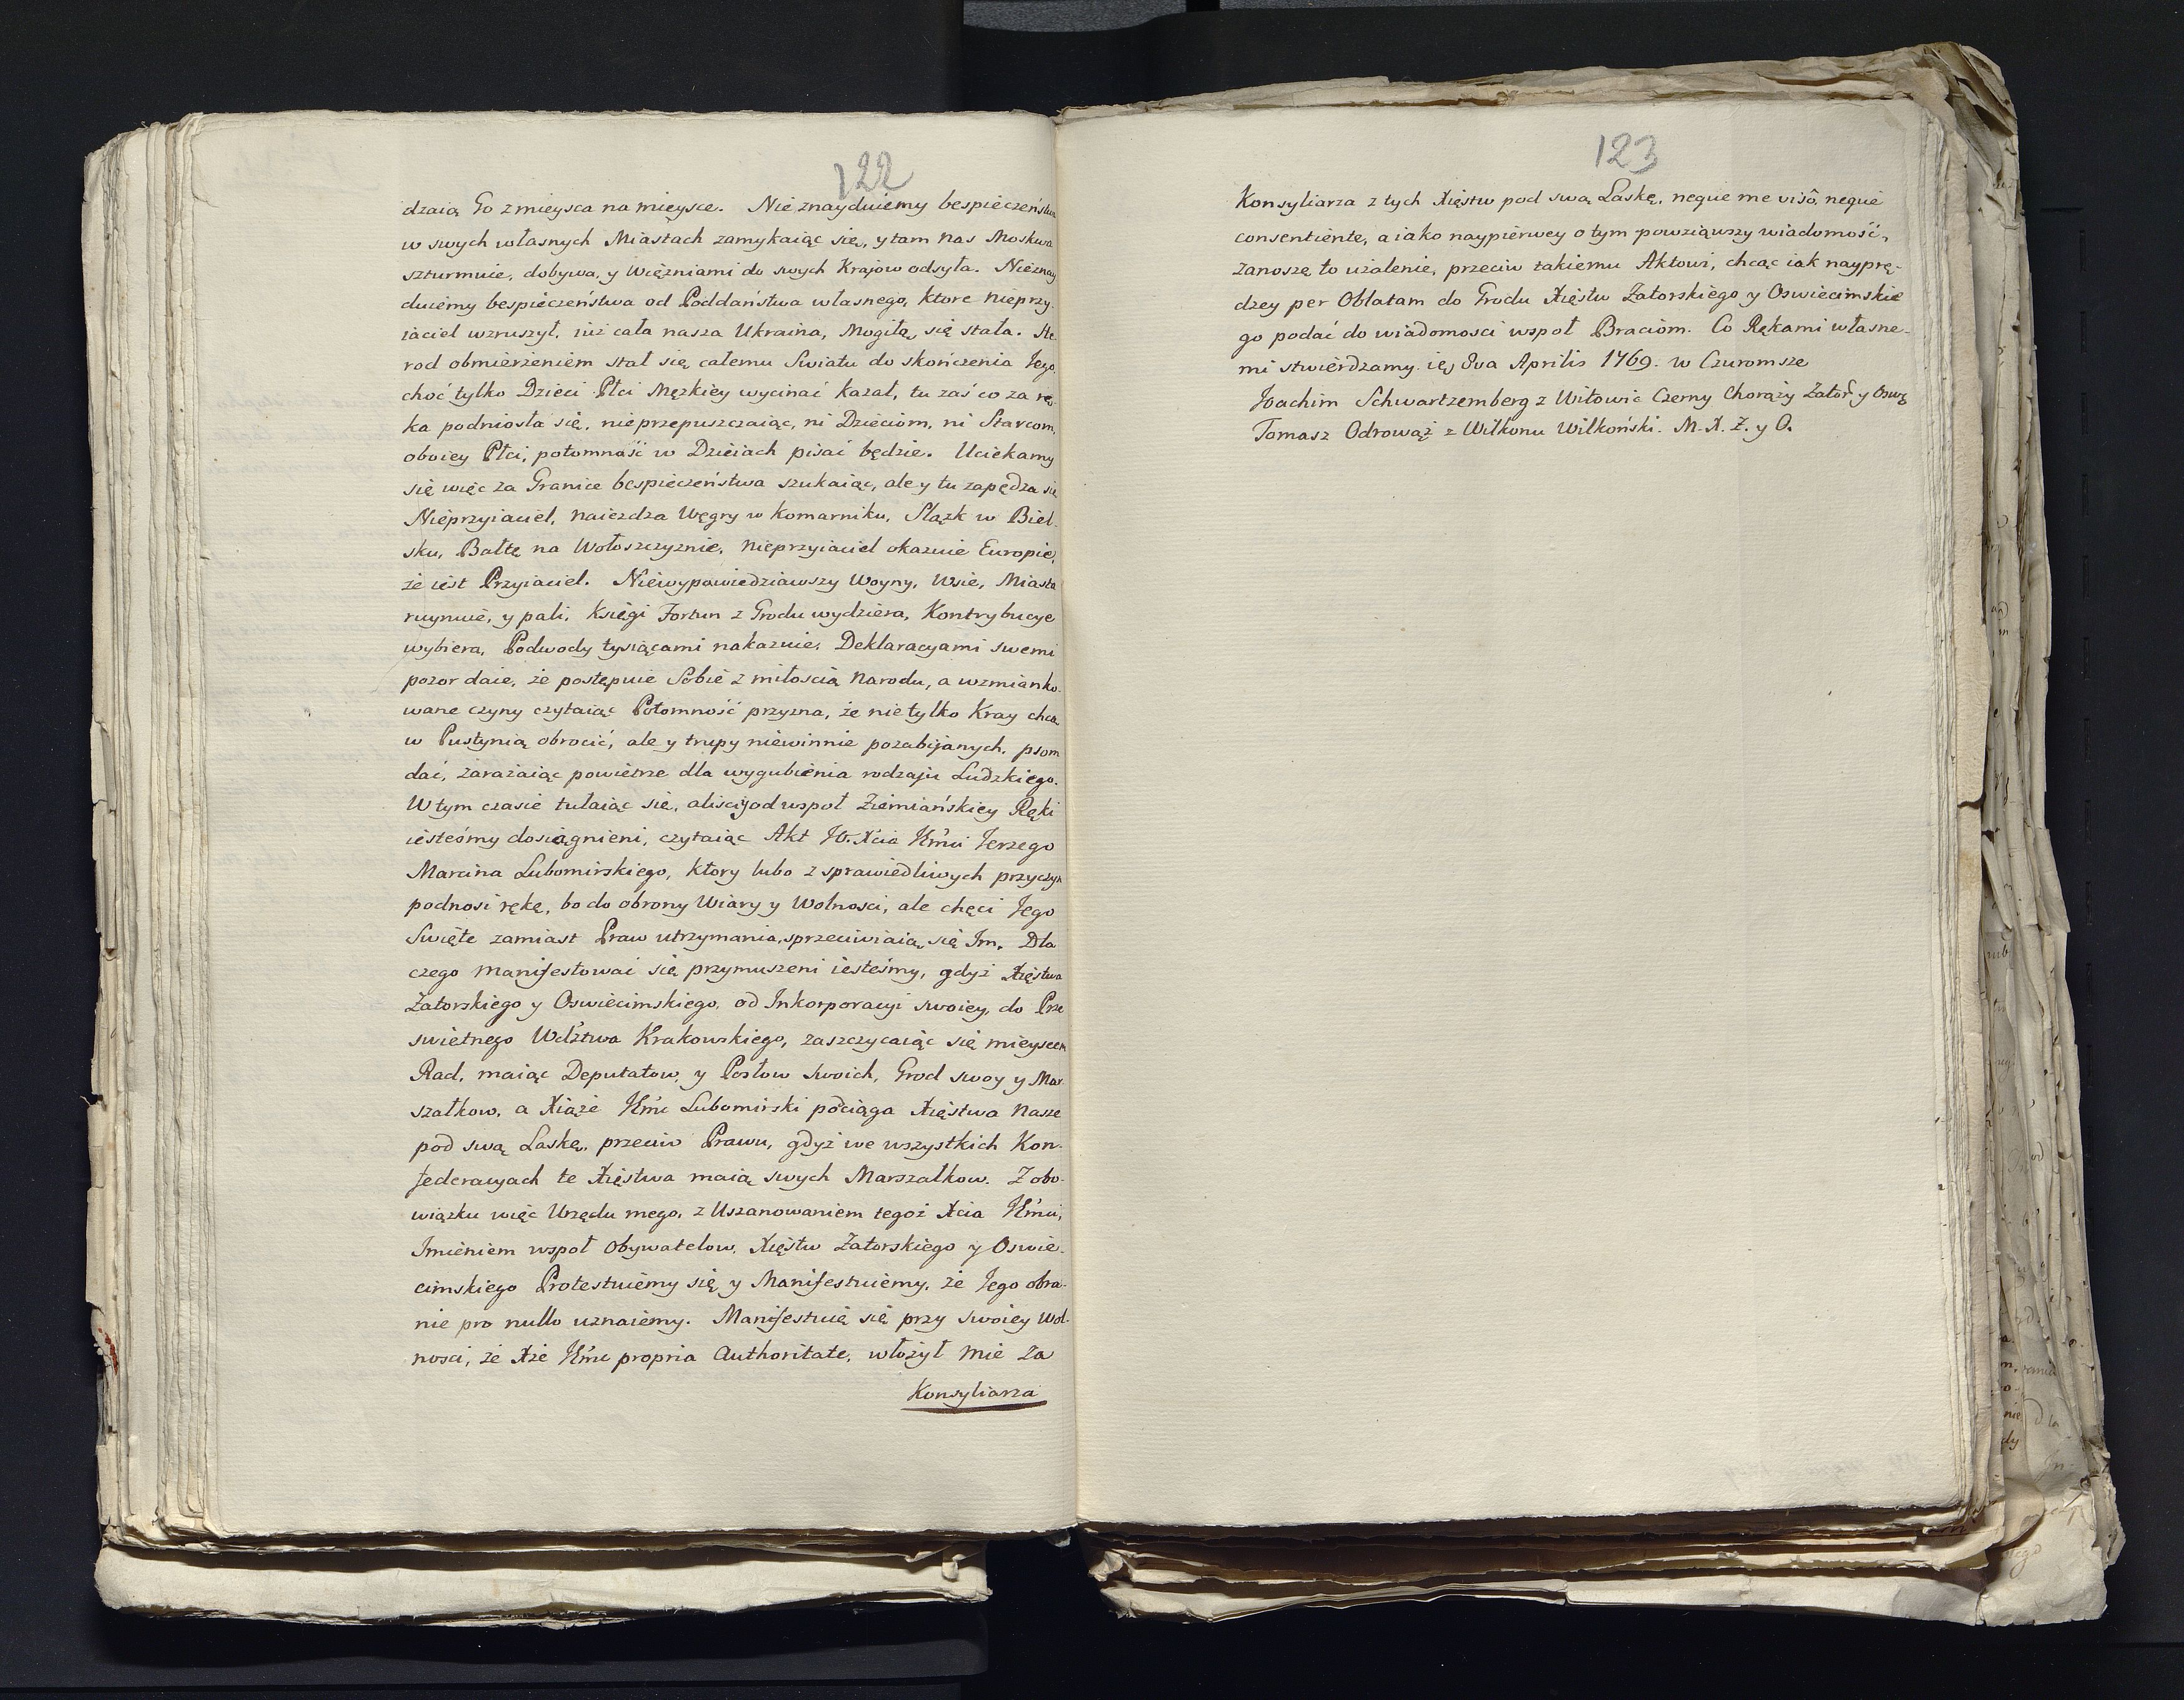 122
dzaią Go z mieysca na mieysce. Nie znayduiemy bespieczeństwa
w swych własnych Miastach zamykaiąc się, y tam nas Moskwa
szturmuie, dobywa, y Więzniami do swych Krajow odsyła. Nieznay
duiemy bespieczeństwa od Poddaństwa własnego, ktore Nieprzy-
iaciel wzruszył, iuż cała nasza Ukraina, Mogiłą się stała. He-
rod obmierzeniem stał się całemu Swiatu do skończenia Jego,
choć tylko Dzieci Płci Męzkiey wycinać kazał, tu zaś co za rę-
ka podniosła się, nieprzepuszczaiąc, ni Dzieciom, ni Starcom,
oboiey Płci, potomność w Dzieiach pisać będzie. Uciekamy
się więc za Granice bespieczeństwa szukaiąc, ale y tu zapędza się
Nieprzyiaciel, naiezdza Węgry w Komarniku, Slązk w Biel-
sku, Bałtę na Wołoszczyznie, nieprzyiaciel okazuie Europie,
że iest Przyiaciel. Niewypowiedziawszy Woyny, Wsie, Miasta
ruynuie, y pali, Księgi Fortun z Grodu wydziera, Kontrybucye
wybiera, Podwody tysiącami nakazuie, Deklaracyami swemi
pozor daie, że postępuie Sobie z miłoscią Narodu, a wzmianko-
wane czyny czytaiąc Potomność przyzna, że nie tylko Kray chcą
w Pustynią obrocić, ale y trupy niewinnie pozabijanych, psom
dać, zarażaiąc powietrze dla wygubienia rodzaju Ludzkiego.
W tym czasie tułaiąc się, alisci od wspoł Ziemiańskiey Ręki
iesteśmy dosiągnieni, czytaiąc Akt JO. Xcia Jmci Jerzego
Marcina Lubomirskiego, ktory lubo z sprawiedliwych przyczyn
podnosi rękę, bo do obrony Wiary y Wolnosci, ale chęci Jego
Swięte zamiast Praw utrzymania, sprzeciwiaią się Im. Dla
czego manifestować się przymuszeni iesteśmy, gdyż Xięstwa
Zatorskiego y Oswiecimskiego, od Inkorporacyi swoiey, do Prze
swietnego Wdztwa Krakowskiego, zaszczycaiąc się mieyscem
Rad, maiąc Deputatow, y Posłow swoich, Grod swoy y Mar-
szałkow, a Xiąże Jmc Lubomirski pociąga Xięstwa Nasze
pod swą Laskę, przeciw Prawu, gdyż we wszystkich Kon-
federacyach te Xięstwa maią swych Marszałkow. Z obo-
wiązku więc Urzędu mego, z Uszanowaniem tegoż Xcia Jmci,
Imieniem wspoł Obywatelow, Xięstw Zatorskiego y Oswie-
cimskiego Protestuiemy się y Manifestuiemy, że Jego obra-
nie pro nullo uznaiemy. Manifestuię się przy swoiey Wol-
nosci, że Xże Jmc propria Authoritate, włożył mie za
Konsyliarza
123
Konsyliarza z tych Xięstw pod swą Laskę, neque me visô, neque
consentiente, a iako naypierwey o tym powziąwszy wiadomość,
zanoszę to użalenie, przeciw takiemu Aktowi, chcąc iak nayprę-
dzey per Oblatam do Grodu Xięstw Zatorskiego y Oswiecimskie
go podać do wiadomosci wspoł Braciom. Co Rękami własne-
mi stwierdzamy. 8va Aprilis 1769. w Czuromsze
Joachim Schwartzemberg z Witowic Czerny Chorąży Zator: y Oswę
Tomasz Odrowąż z Wilkonu Wilkoński. M. X. Z. y O.